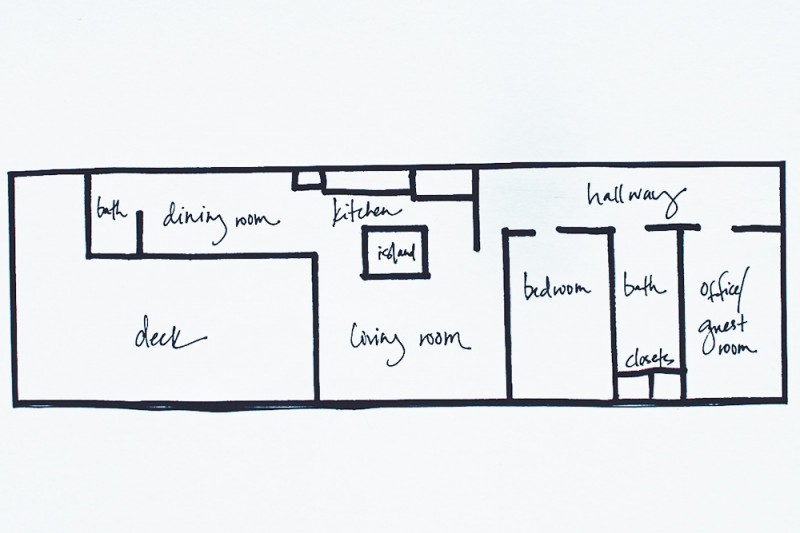 hallway
bath
dining room
kitchen
island
bedroom
bath
office/
guest
room
deck
living room
closets